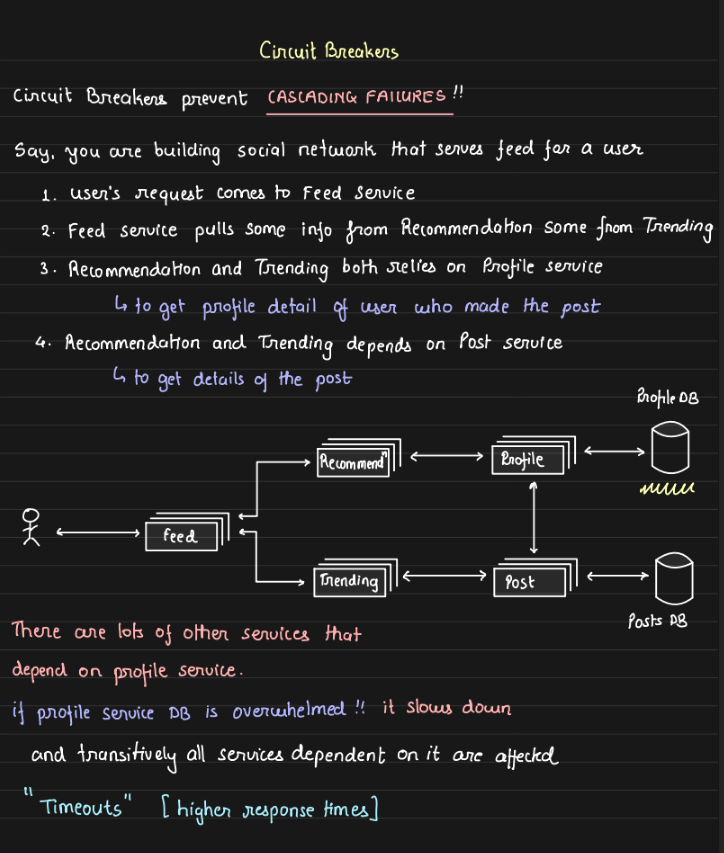 Circuit Breakers
Circuit Breakers prevent CASCADING FAILURES!!
Say, you are building social network that serves feed for a user
1. user's request comes to Feed Service
2. Feed service pulls some info from Recommendation some from Trending
3. Recommendation and Trending both relies on Profile service
↳ to get profile detail of user who made the post
4. Recommendation and Trending depends on Post service
↳ to get details of the post
Profile DB
Recommendⁿ
Profile
Feed
Trending
Post
Posts DB
There are lots of other services that
depend on profile service.
if profile service DB is overwhelmed!! it slows down
and transitively all services dependent on it are affected
"Timeouts" [higher response times]